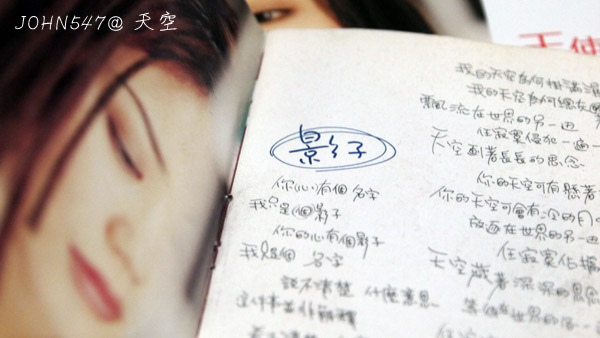 JOHN547@ 天空
天使
影子
你心有個名字
我只是個影子
你的心有個影子
我只是個 名字
說不清楚 什麼意思
我的天空為何掛滿
我的天空為何總在
飄流在世界的另一邊
任寂寞侵犯一遍一
天空劃著長長的思念
你的天空可有懸著
你的天空可會有冷的月
放逐在世界的另一邊
任寂寞
天空藏著深深的思念
在世界的另一
任寂寞